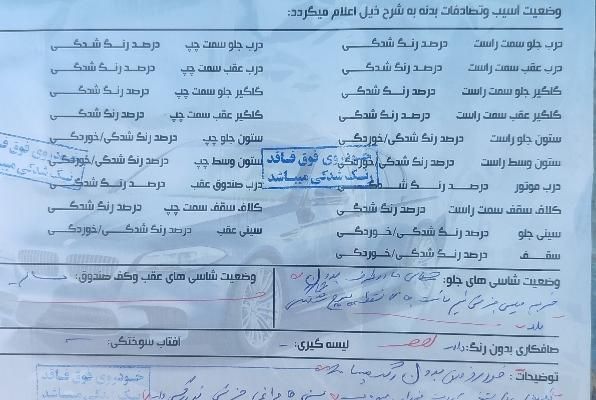 وضعیت آسیب وتصادفات بدنه به شرح ذیل اعلام میگردد:
درب جلو سمت راست درصد رنگ شدگی درب جلو سمت چپ درصد رنگ شدگی
درب عقب سمت راست درصد رنگ شدگی درب عقب سمت چپ درصد رنگ شدگی
گلگیر جلو سمت راست درصد رنگ شدگی گلگیر جلو سمت چپ درصد رنگ شدگی
گلگیر عقب سمت راست درصد رنگ شدگی گلگیر عقب سمت چپ درصد رنگ شدگی
ستون جلو راست درصد رنگ شدگی/خوردگی ستون جلو چپ درصد رنگ شدگی/خوردگی
ستون وسط راست درصد رنگ شدگی/خوردگی ستون وسط چپ درصد رنگ شدگی/خوردگی
خودروی فوق فاقد
رنگ شدگی میباشد
خودروی فوق فاقد
رنگ شدگی میباشد
درب موتور درصد رنگ شدگی درب صندوق عقب درصد رنگ شدگی
کلاف سقف سمت راست درصد رنگ شدگی کلاف سقف سمت چپ درصد رنگ شدگی
سینی جلو درصد رنگ شدگی/خوردگی سینی عقب درصد رنگ شدگی/خوردگی
سقف درصد رنگ شدگی/خوردگی
وضعیت شاسی های جلو: وضعیت شاسی های عقب وکف صندوق: سالم
صافکاری بدون رنگ: دارد لیسه گیری: آفتاب سوختگی:
توضیحات: خودرو فوق بدون رنگ میباشد
خودروی فوق فاقد
رنگ شدگی میباشد